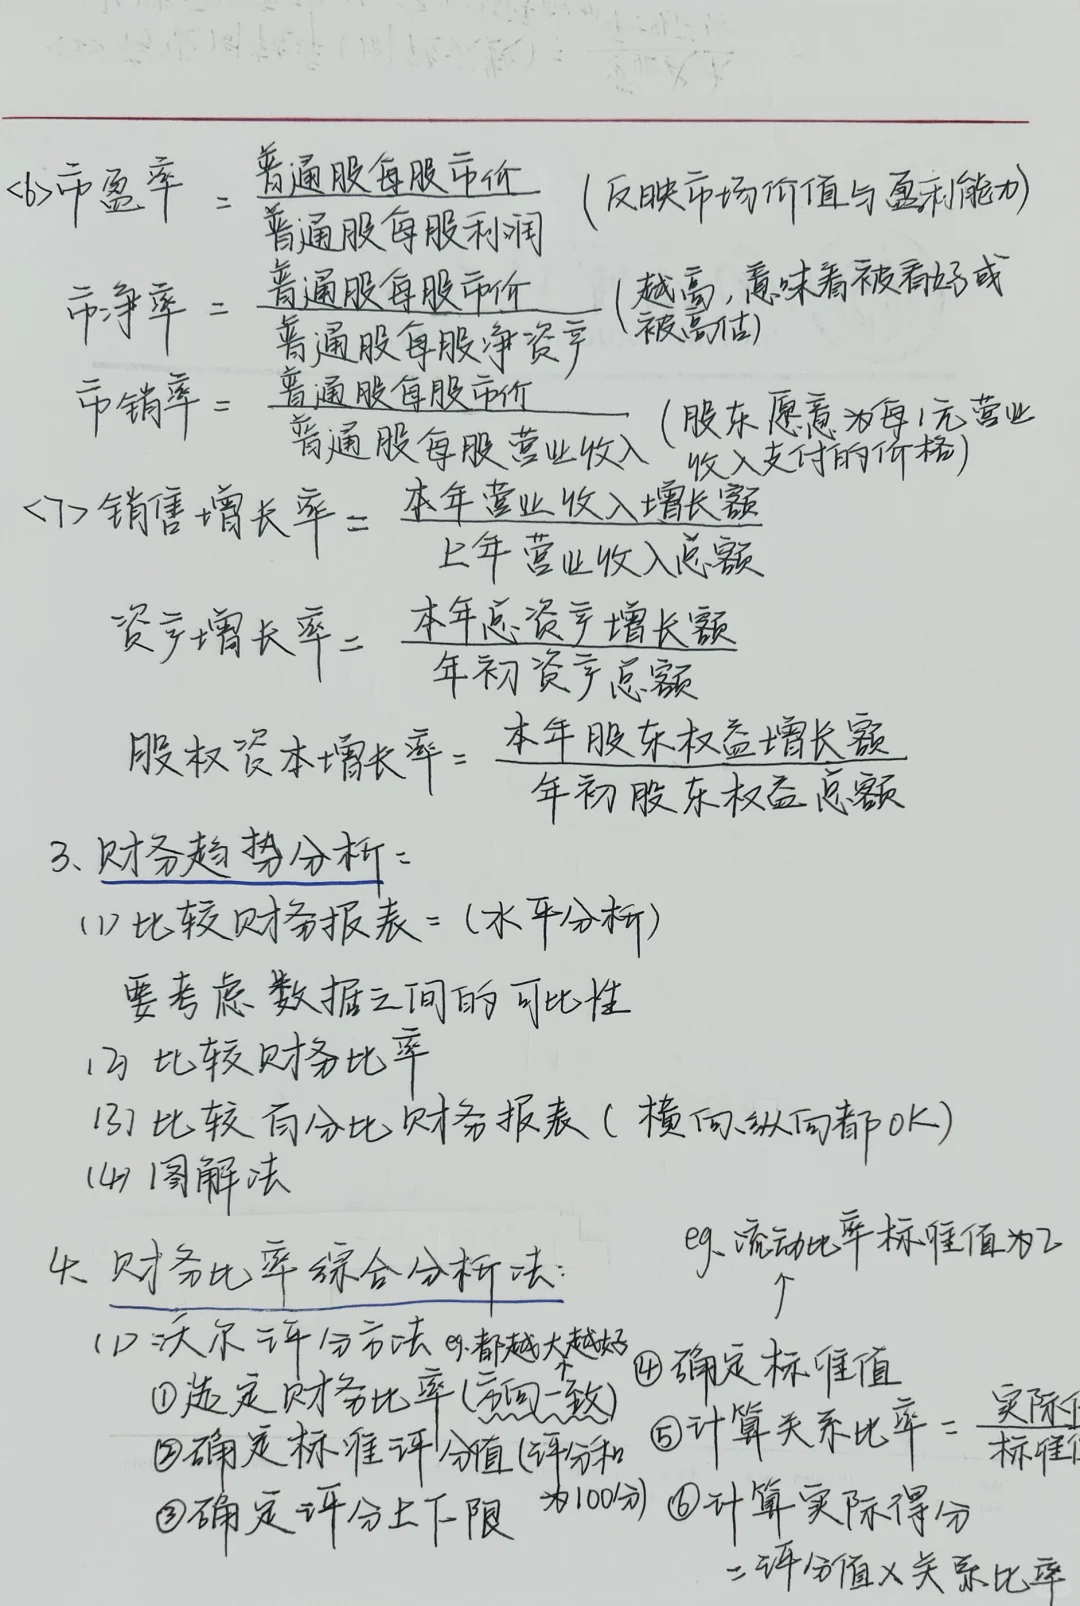 <6>市盈率 = 普通股每股市价 (反映市场价值与盈利能力)
普通股每股利润
市净率 = 普通股每股市价 (越高,意味着被看好或
普通股每股净资产 被高估)
市销率 = 普通股每股市价 (股东愿意为每1元营业
普通股每股营业收入 收入支付的价格)
<7>销售增长率 = 本年营业收入增长额
上年营业收入总额
资产增长率 = 本年总资产增长额
年初资产总额
股权资本增长率 = 本年股东权益增长额
年初股东权益总额
3、财务趋势分析:
(1)比较财务报表:(水平分析)
要考虑数据之间的可比性
(2)比较财务比率
(3)比较百分比财务报表(横向、纵向都OK)
(4)图解法
4、财务比率综合分析法:
(1)沃尔评分方法 eg.都越大越好
①选定财务比率(方向一致)
②确定标准评分值(评分和
为100分)
③确定评分上下限
eg、流动比率标准值为2
↑
④确定标准值
⑤计算关系比率 = 实际
标准
⑥计算实际得分
=评分值×关系比率